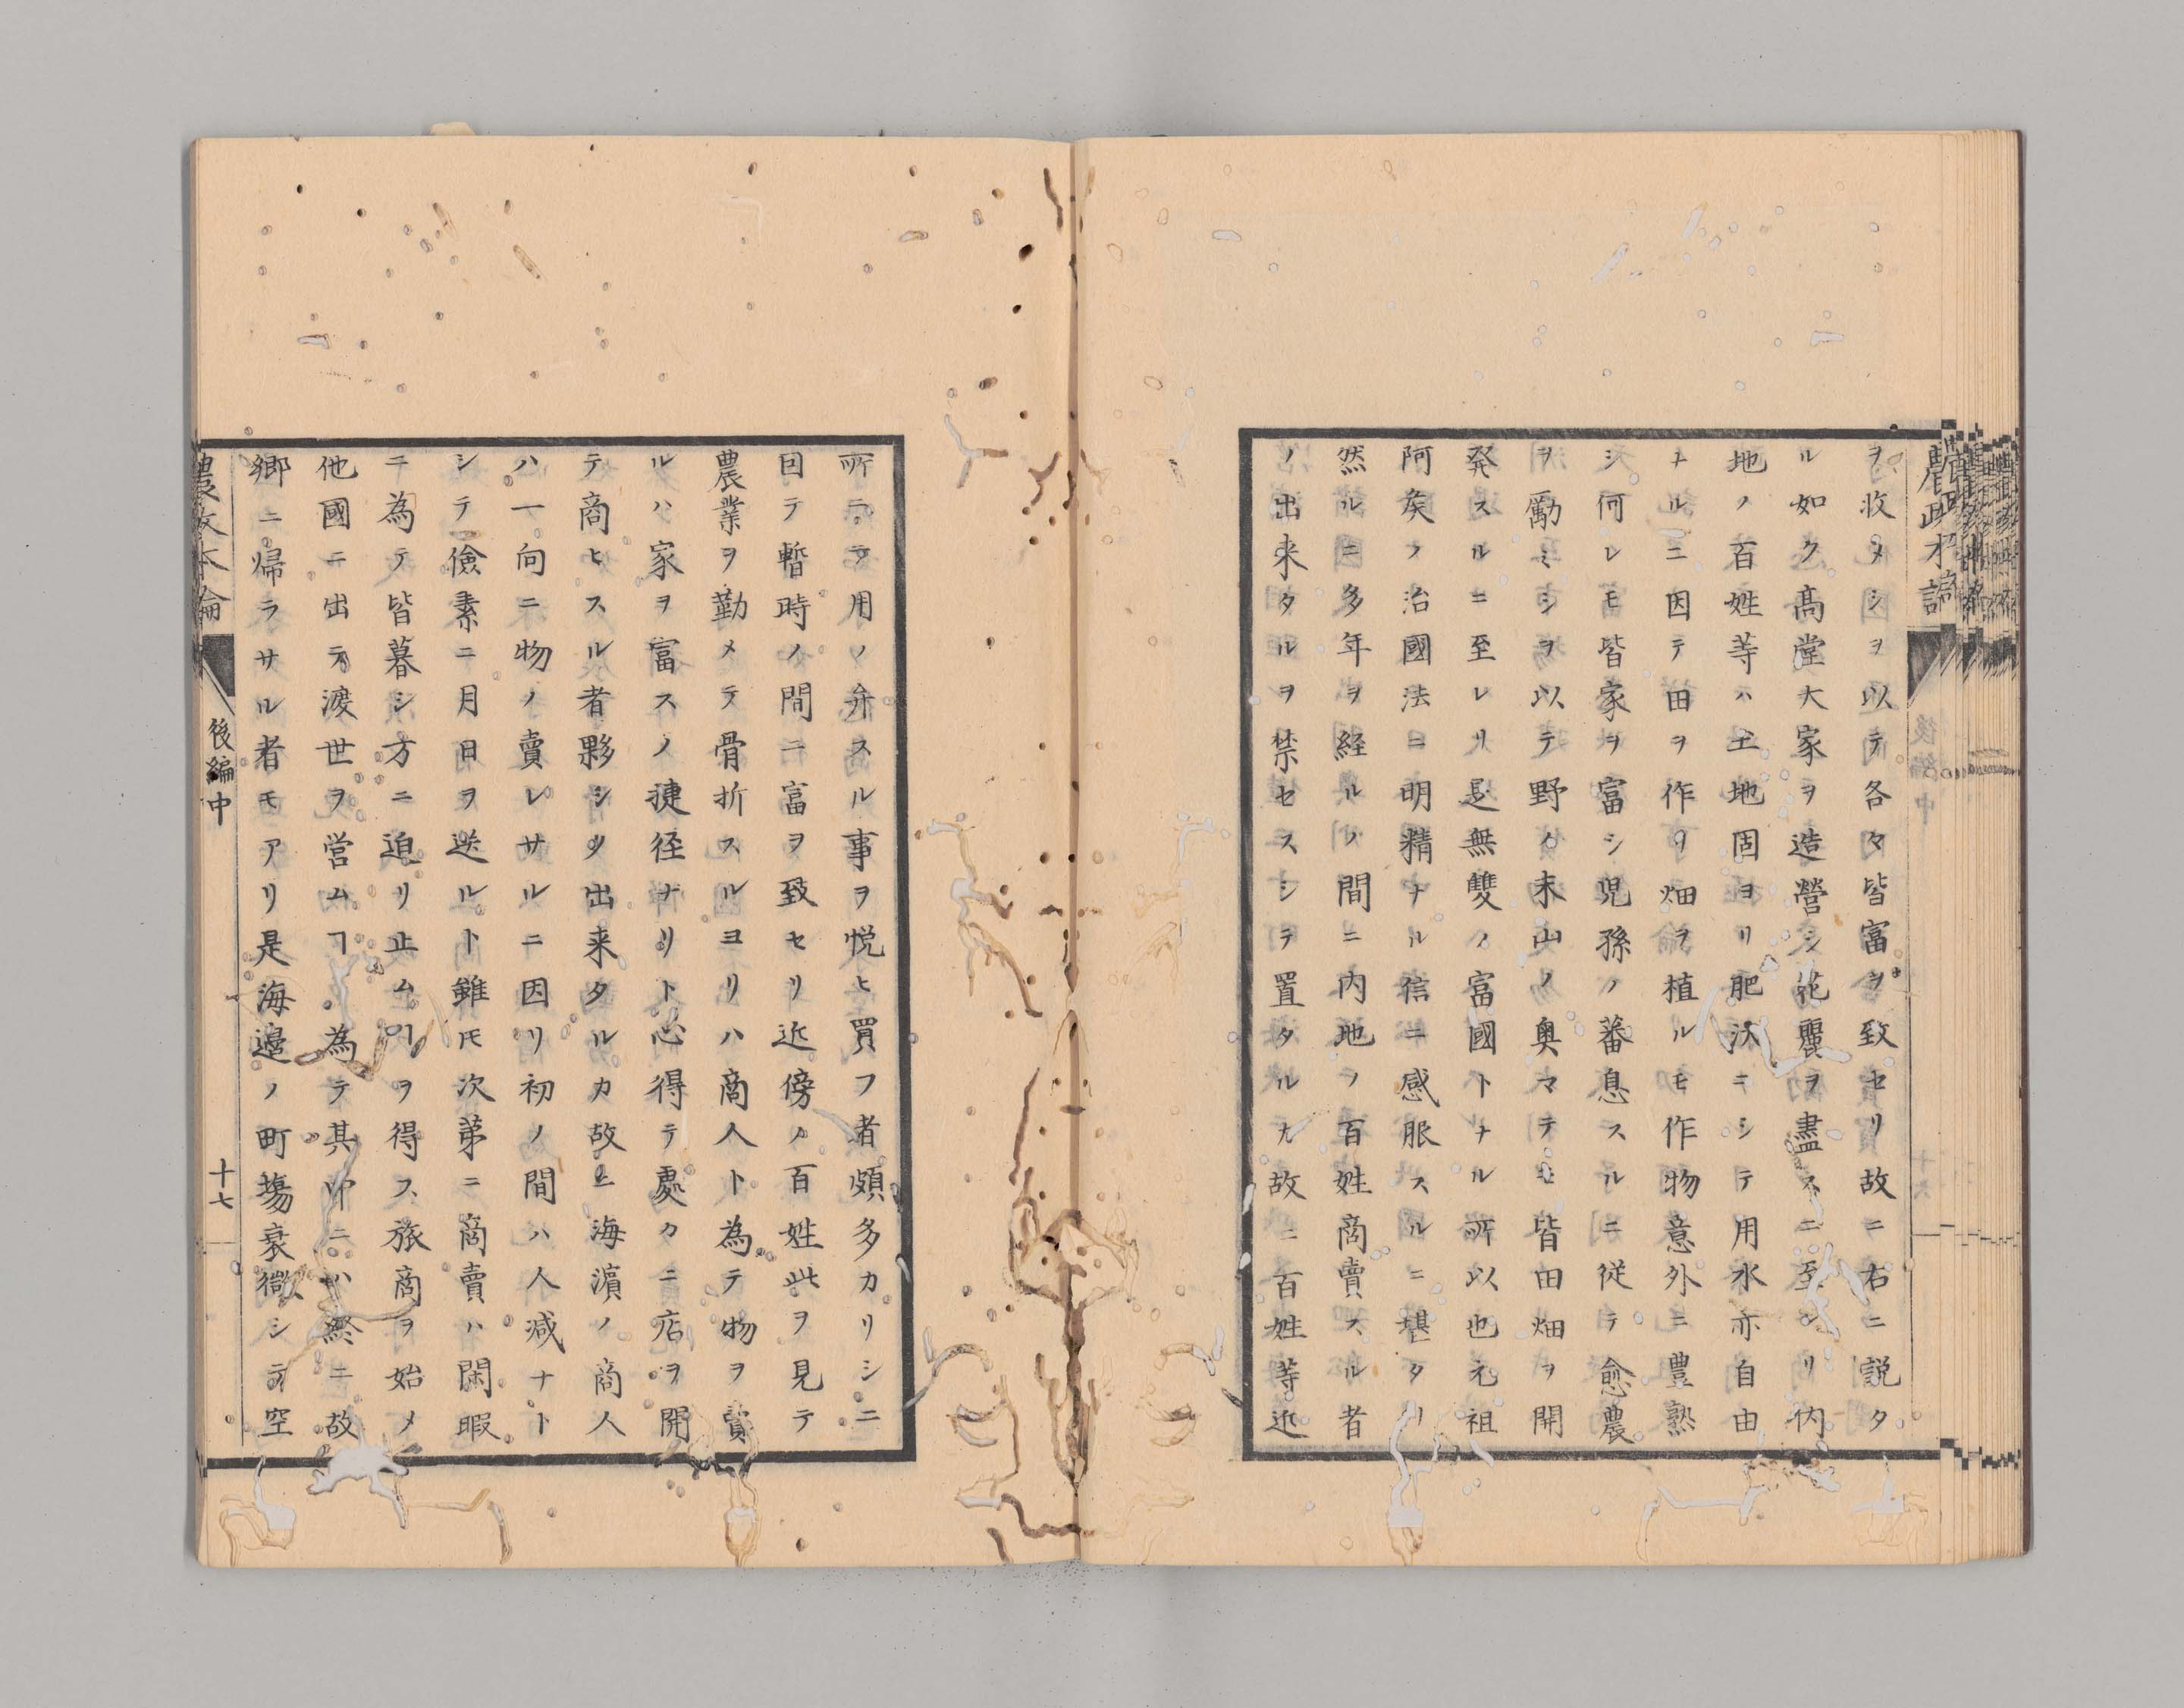 ヲ收メシヲ以テ各々皆富ヲ致セリ故ニ右ニ説タ
ル如ク髙堂大家ヲ造營シ花麗ヲ盡スニ至レリ内
地ノ百姓等ハ土地固ヨリ肥沃ニシテ用水亦自由
ナルニ因テ田ヲ作リ畑ヲ植ルモ作物意外ニ豊熟
シ何レモ皆家ヲ富シ児孫ノ蕃息スルニ従テ愈農
ヲ勵ミシヲ以テ野ノ末山ノ奥マテモ皆田畑ヲ開
発スルニ至レリ是無雙ノ富國トナル所以也元祖
阿矦ノ治國法ニ明精ナル信ニ感服スルニ堪タリ
然ルニ多年ヲ経ルノ間ニ内地ノ百姓商賣スル者
ノ出来タルヲ禁セスシテ置タル九故ニ百姓等近
所ニテ用ノ弁スル事ヲ悦ヒ買フ者頗多カリシニ
因テ暫時ノ間ニ富ヲ致セリ近傍ノ百姓此ヲ見テ
農業ヲ勤メテ骨折スルヨリハ商人ト為テ物ヲ賣
ルハ家ヲ富スノ捷径ナリト心得テ處々ニ店ヲ開
テ商ヒスル者夥シク出来タルカ故ニ海濵ノ商人
ハ一向ニ物ノ賣レサルニ因リ初ノ間ハ人减ナト
シテ儉素ニ月日ヲ送ルト雖モ次第ニ商賣ハ閑暇
ニ為テ皆暮シ方ニ迫リ止ムヿヲ得ス旅商ヲ始メ
他國ニ出テ渡世ヲ営ムヿ為テ其中ニハ終ニ故
郷ニ帰ラサル者モアリ是海邉ノ町塲衰微シテ空
農政本論
後編中
十七